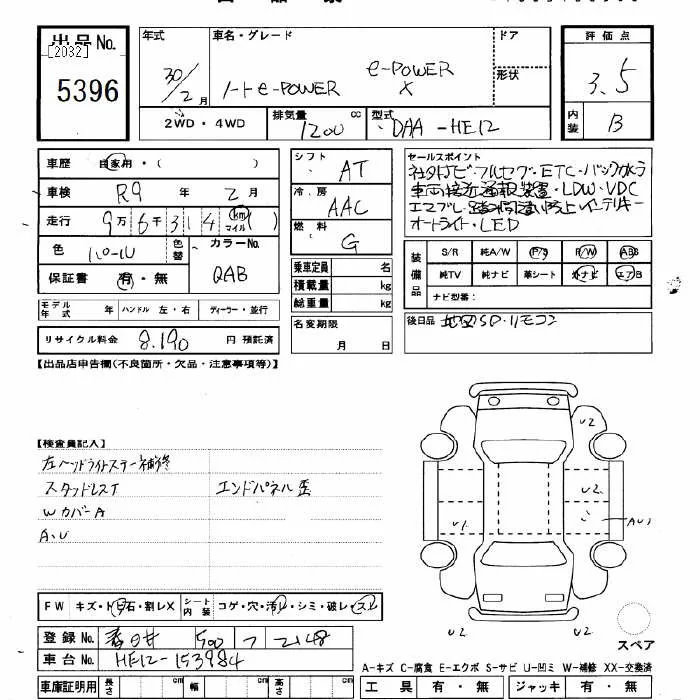 出品No.
[2032]
5396
年式
30/2月
車名・グレード
ノートe-POWER
e-POWER X
ドア
形状
評価点
3.5
内装
B
2WD・4WD
排気量
1200
cc
型式
DAA-HE12
車歴
自家用・( )
車検
R9 年 2月
走行
9万6千314 km マイル ( )
色
パール
色替
カラーNo.
QAB
保証書
有・無
モデル年式 年
ハンドル 左・右
ディーラー・並行
リサイクル料金
8.190 円 預託済
シフト
AT
冷房
AAC
燃料
G
乗車定員 名
積載量 kg
総重量 kg
名変期限
月 日
セールスポイント
社外ナビ・フルセグ・ETC・バックカメラ
車両接近通報装置・LDW・VDC
エマブレ・踏み間違い防止・インテリキー
オートライト・LED
装備品
S/R 純A/W P/S P/W ABS
純TV 純ナビ 革シート 外ナビ エアB
ナビ型番:
後日品
地図SD・リモコン
【出品店申告欄(不良箇所・欠品・注意事項等)】
【検査員記入】
左ヘッドライトステー補修
スタッドレスT
エンドパネル歪
WカバーA
A.U
U2
U2
U1
AU1
U2
U2
スペア
FW
キズ・ト石・割レX
シート内装
コゲ・穴・汚レ・シミ・破レ・スレ
登録No.
春日井 500 フ 2148
車台No.
HE12-153984
車庫証明用
長さ cm
幅 cm
高さ cm
A-キズ C-腐食 E-エクボ S-サビ U-凹ミ W-補修 XX-交換済
工具 有・無
ジャッキ 有・無